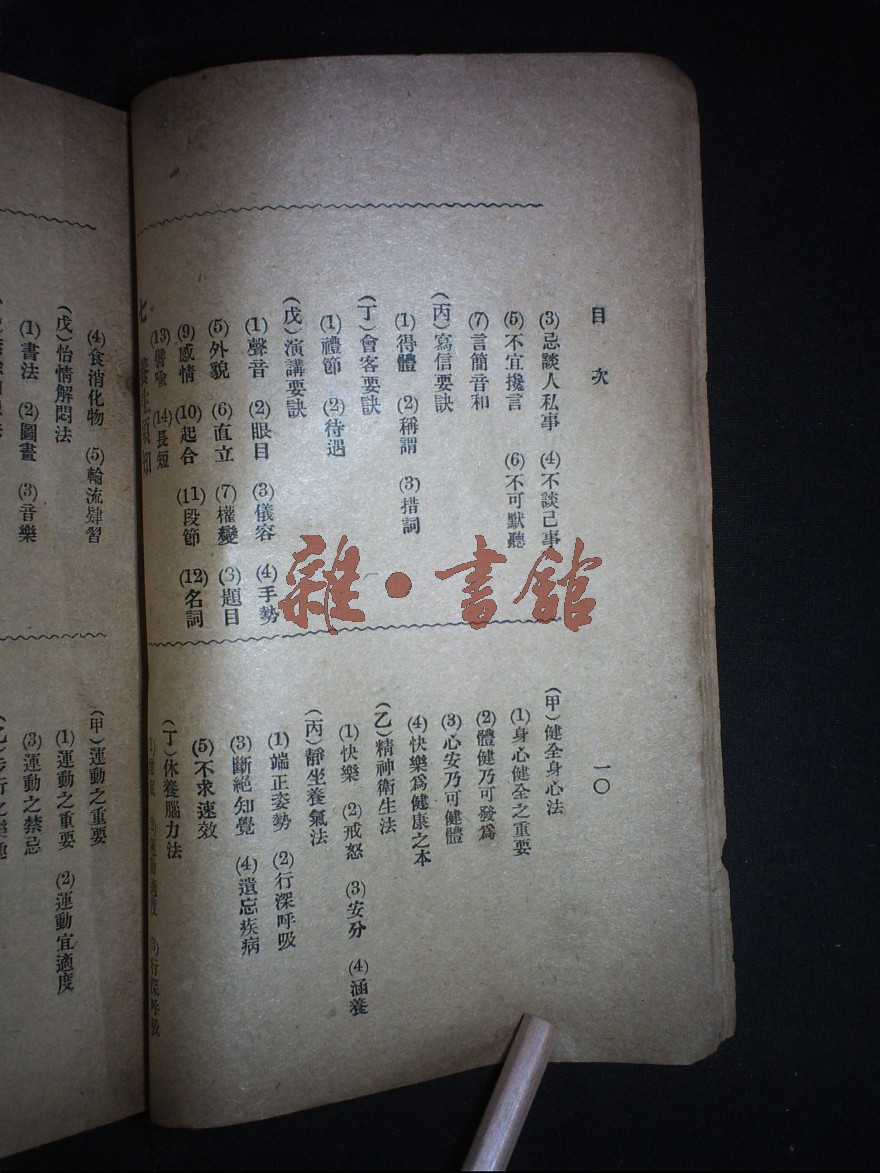 目次
一〇
(3)忌談人私事 (4)不談己事
(5)不宜攙言 (6)不可默聽
(7)言簡音和
(丙)寫信要訣
(1)得體 (2)稱謂 (3)措詞
(丁)會客要訣
(1)禮節 (2)待遇
(戊)演講要訣
(1)聲音 (2)眼目 (3)儀容 (4)手勢
(5)外貌 (6)直立 (7)權變 (3)題目
(9)感情 (10)起合 (11)段節 (12)名詞
(13)譬喩 (14)長短
七
(甲)健全身心法
(1)身心健全之重要
(2)體健乃可發爲
(3)心安乃可健體
(4)快樂爲健康之本
(乙)精神衛生法
(1)快樂 (2)戒怒 (3)安分 (4)涵養
(丙)靜坐養氣法
(1)端正姿勢 (2)行深呼吸
(3)斷絕知覺 (4)遺忘疾病
(5)不求速效
(丁)休養腦力法
(3)行深呼吸
(4)食消化物 (5)輪流肄習
(戊)怡情解悶法
(1)書法 (2)圖畫 (3)音樂
(甲)運動之重要
(1)運動之重要 (2)運動宜適度
(3)運動之禁忌
雜·書館